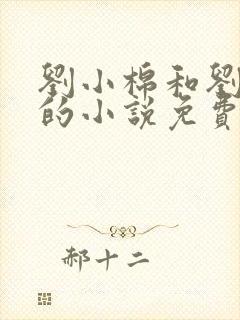 劉小棉和劉
的小說免費
郝十二